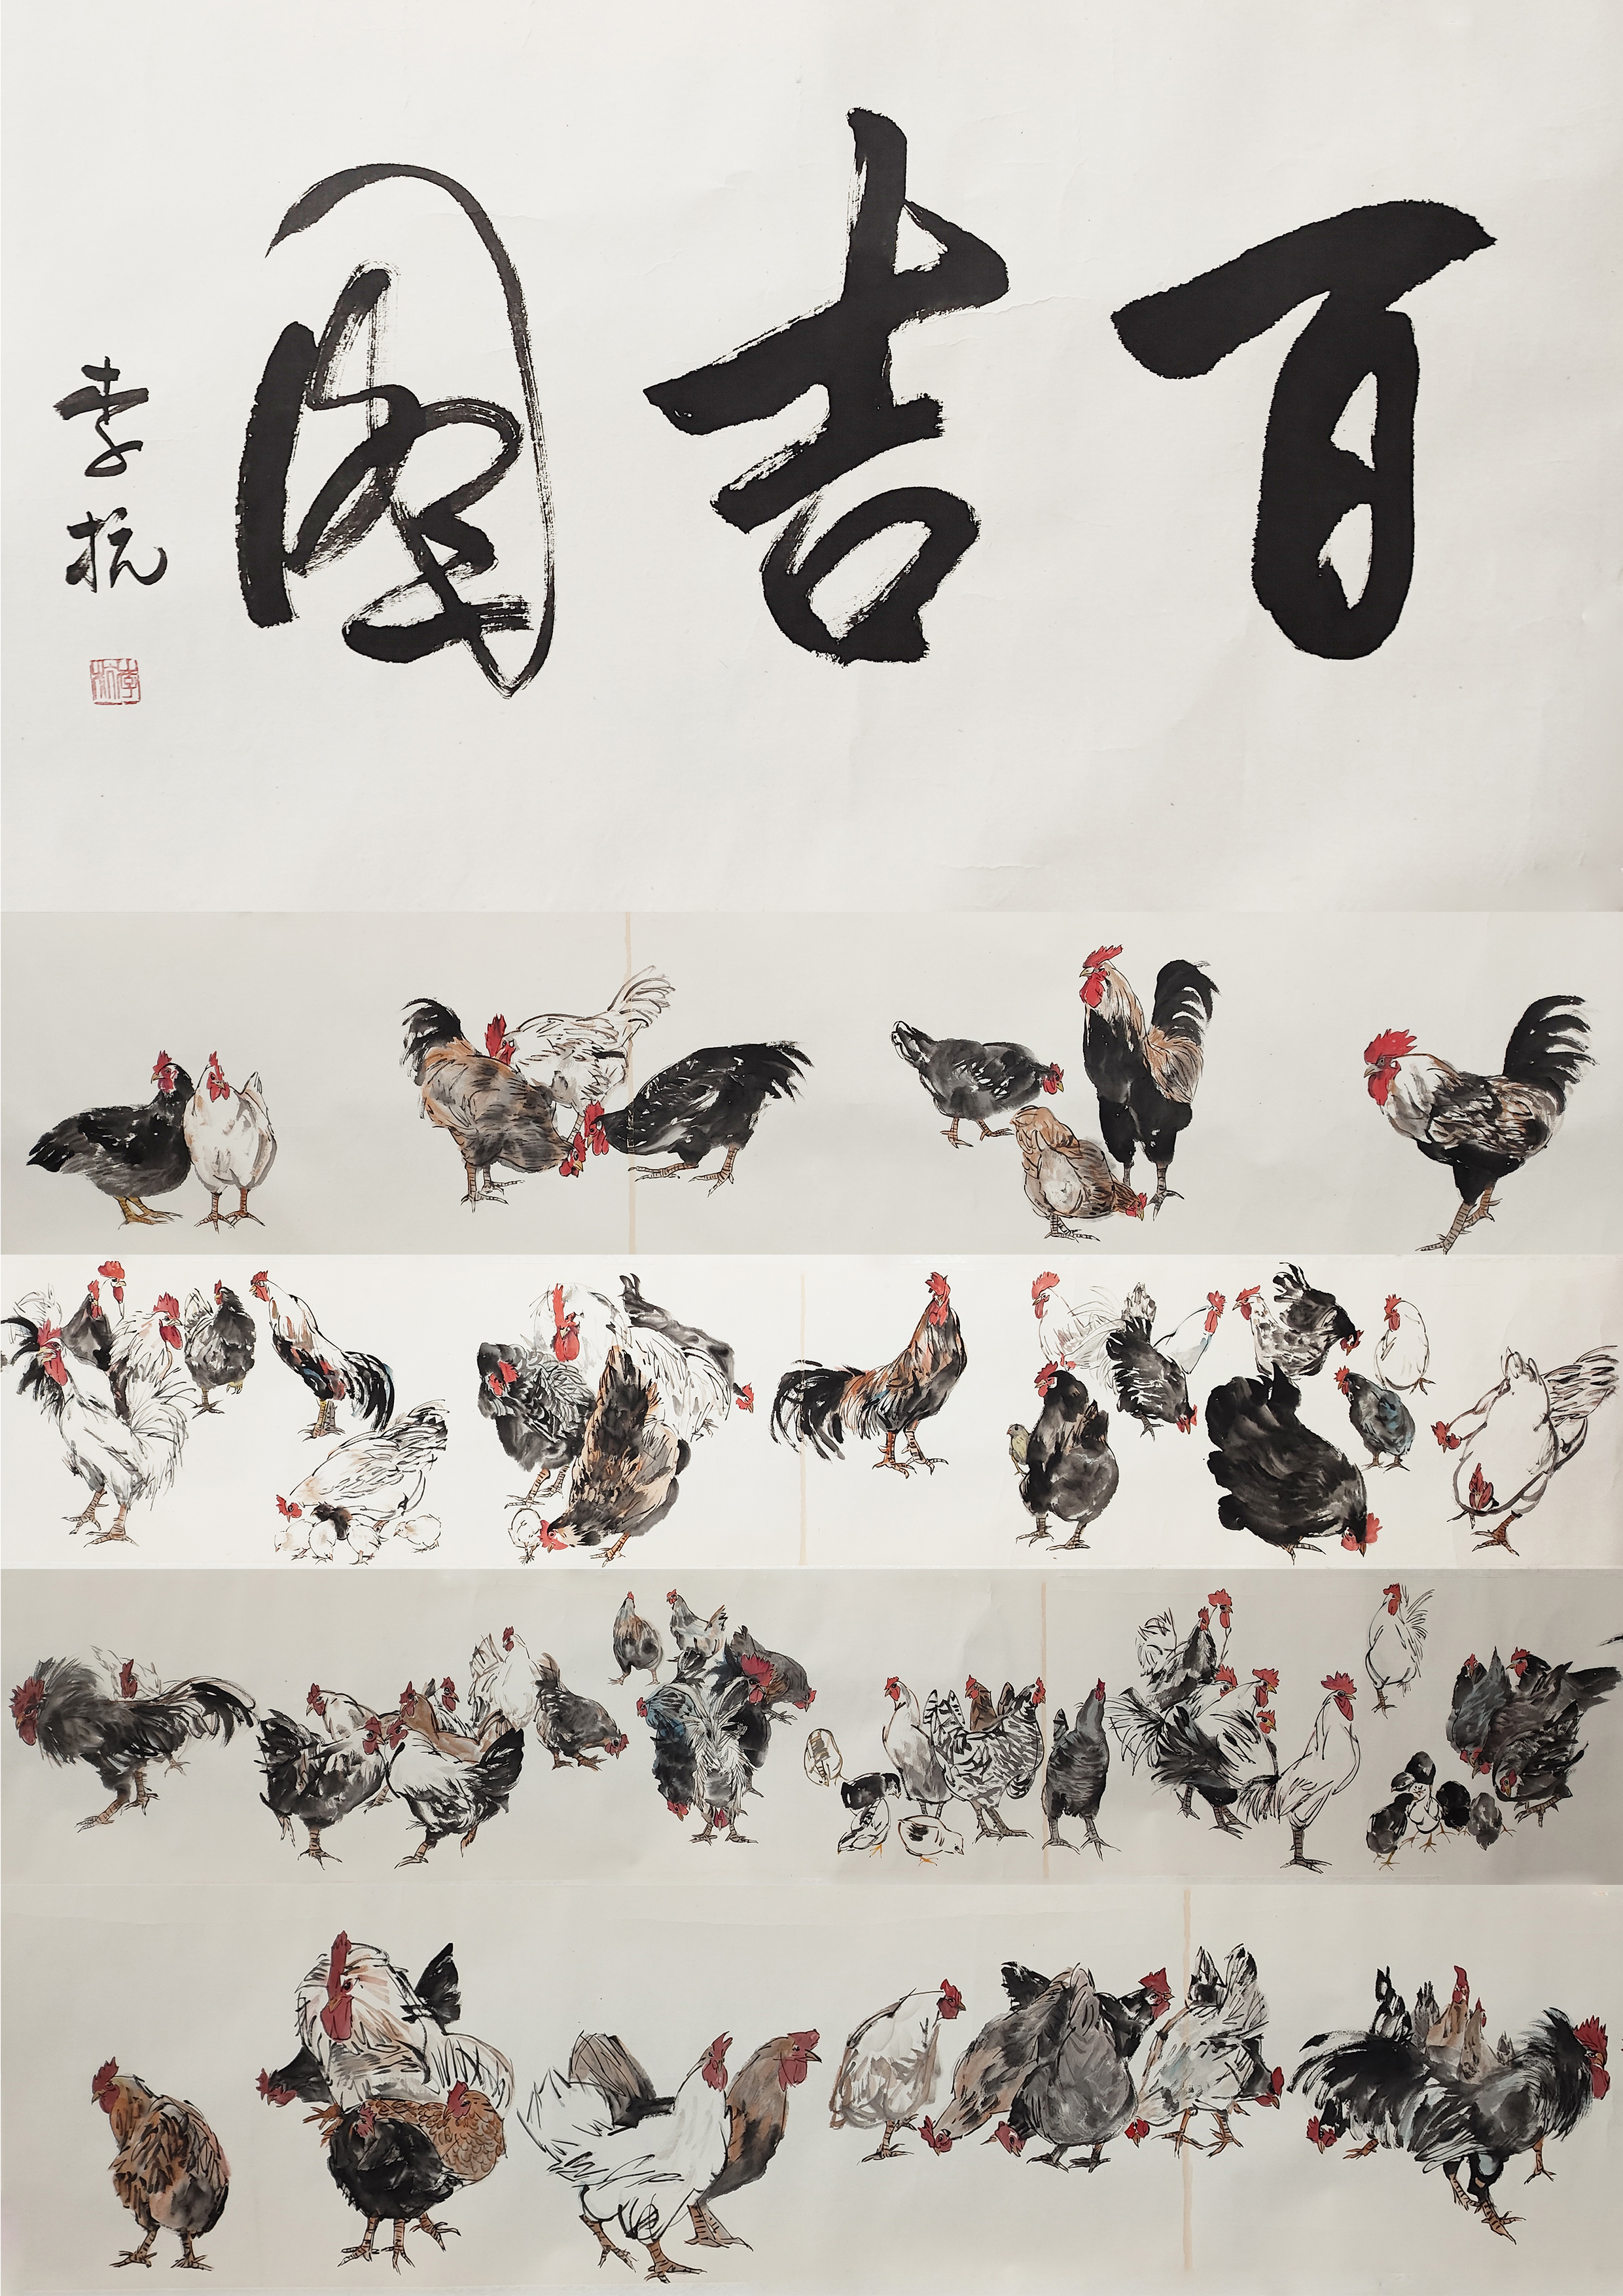 百吉图
李抗